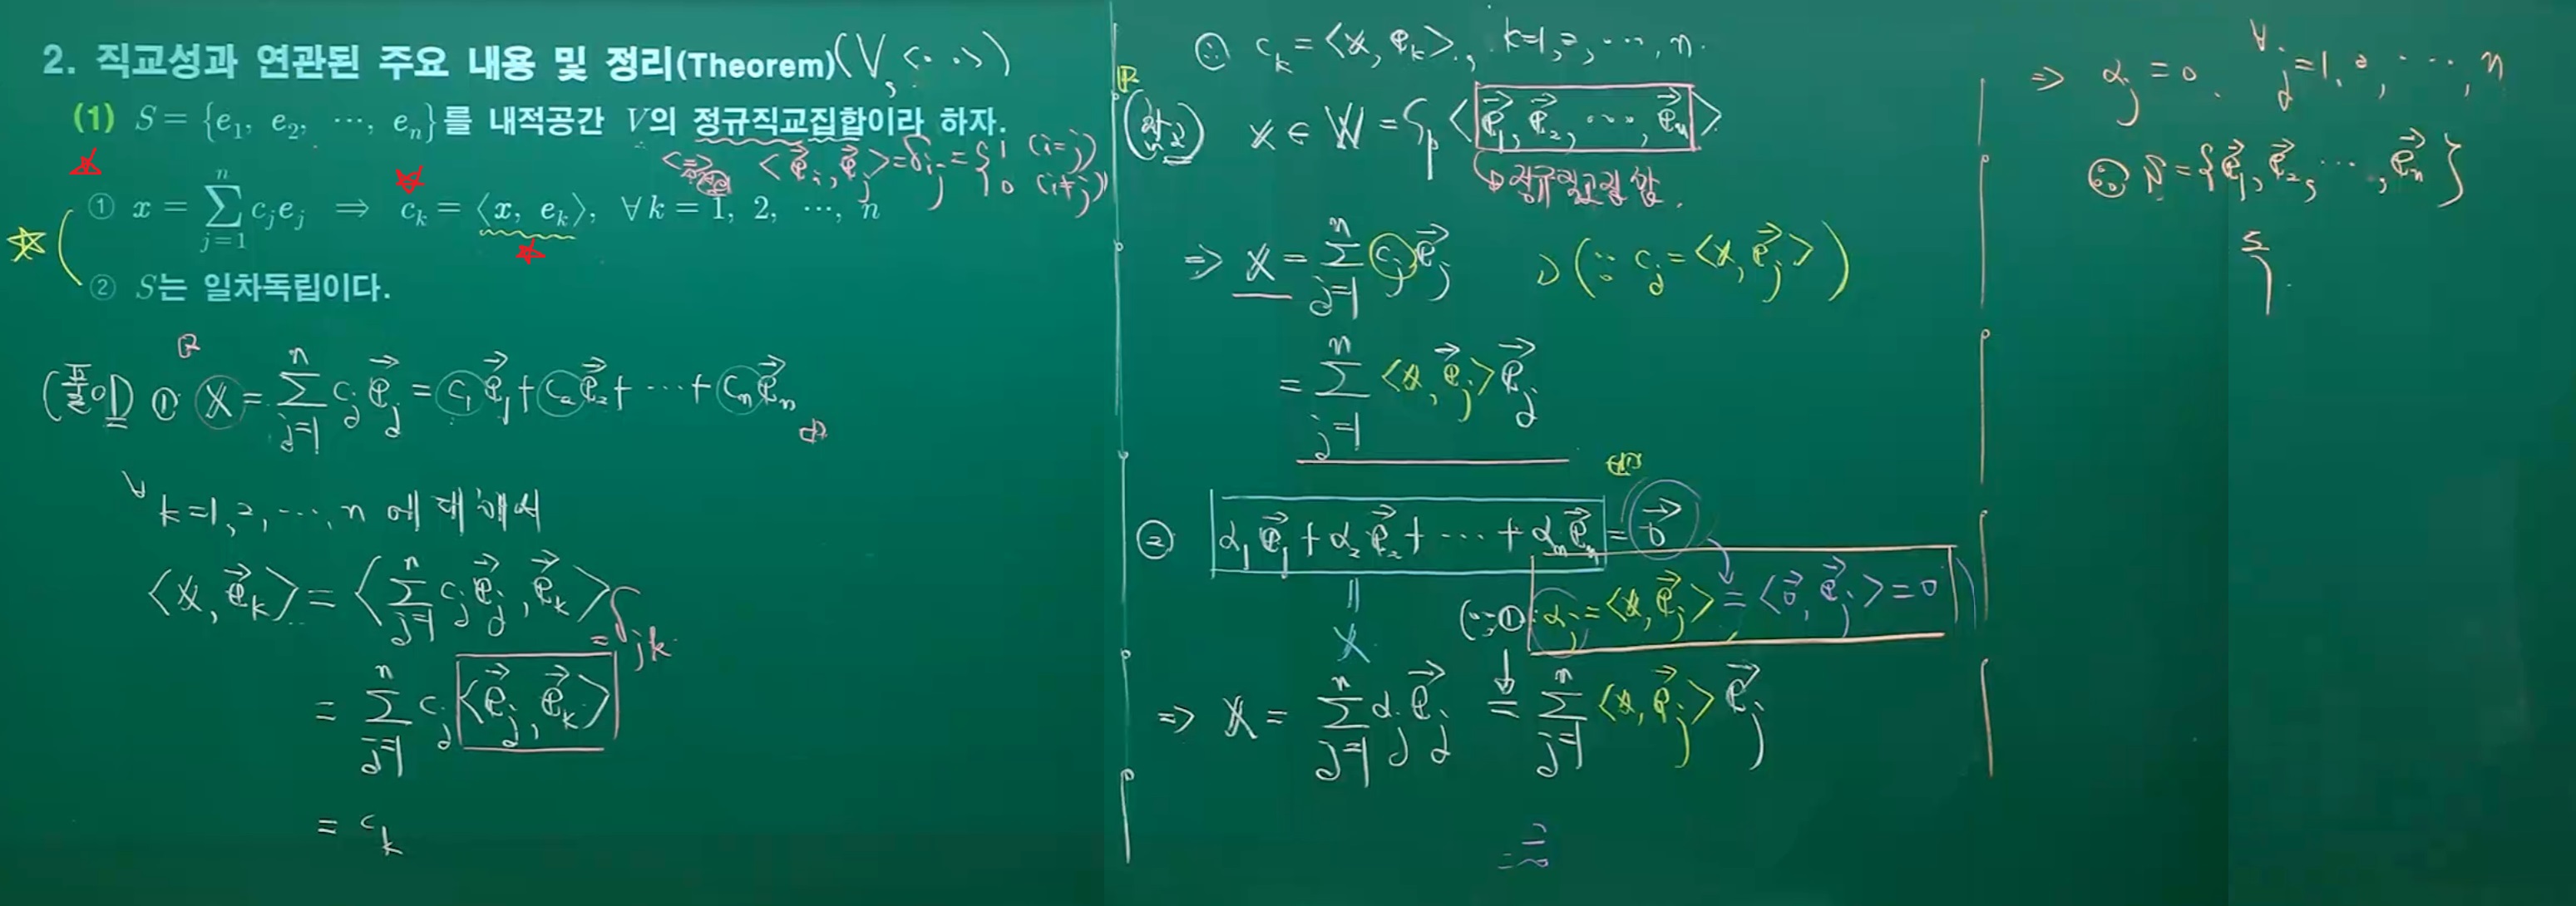 2. 직교성과 연관된 주요 내용 및 정리(Theorem) (V, <· ·>)
(1) S = {e₁, e₂, ⋯, eₙ}를 내적공간 V의 정규직교집합이라 하자.
<=> <e⃗ᵢ, e⃗ⱼ> = δᵢⱼ = { 1 (i=j)
0 (i≠j)
① x = ∑ⱼ₌₁ⁿ cⱼeⱼ ⇒ cₖ = ⟨x, eₖ⟩, ∀k = 1, 2, ⋯, n
② S는 일차독립이다.
(풀이) ① x = ∑ⱼ₌₁ⁿ cⱼe⃗ⱼ = c₁e⃗₁ + c₂e⃗₂ + ⋯ + cₙe⃗ₙ
∀k=1, 2, ⋯, n 에 대해서
<x, e⃗ₖ> = <∑ⱼ₌₁ⁿ cⱼe⃗ⱼ, e⃗ₖ>
= δⱼₖ
= ∑ⱼ₌₁ⁿ cⱼ <e⃗ⱼ, e⃗ₖ>
= cₖ
∴ cₖ = <x, e⃗ₖ>, k=1, 2, ⋯, n.
(참고) x ∈ W = Sp <e⃗₁, e⃗₂, ⋯, e⃗ₙ>
정규직교집합.
⇒ x = ∑ⱼ₌₁ⁿ cⱼe⃗ⱼ (∵ cⱼ = <x, e⃗ⱼ>)
= ∑ⱼ₌₁ⁿ <x, e⃗ⱼ> e⃗ⱼ
② α₁e⃗₁ + α₂e⃗₂ + ⋯ + αₙe⃗ₙ = 0⃗
‖
x
(∵ ① αⱼ = <x, e⃗ⱼ> = <0⃗, e⃗ⱼ> = 0)
⇒ x = ∑ⱼ₌₁ⁿ αⱼe⃗ⱼ = ∑ⱼ₌₁ⁿ <x, e⃗ⱼ> e⃗ⱼ
= 0⃗
⇒ αⱼ = 0, ∀j=1, 2, ⋯, n
∴ S = {e⃗₁, e⃗₂, ⋯, e⃗ₙ}